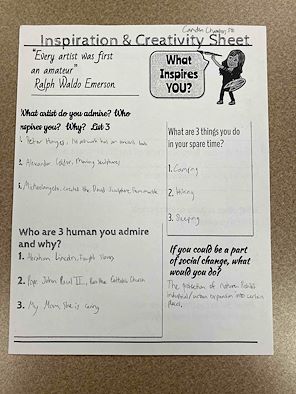 Inspiration & Creativity Sheet
"Every artist was first
an amateur"
Ralph Waldo Emerson
What
Inspires
YOU?
What artist do you admire? Who
inspires you? Why? List 3
1. Peter
2. Alexander Calder, Moving Sculptures
3. Michelangelo, created the David Sculpture
What are 3 things you do
in your spare time?
1. Camping
2. Hiking
3. Sleeping
Who are 3 human you admire
and why?
1. Abraham Lincoln, Fought Slavery
2. Pope John Paul II, Ran the Catholic Church
3. My Mom, She is caring
If you could be a part
of social change, what
would you do?
The protection of nature. Prohibit
Industrial/urban expansion into certain
places.